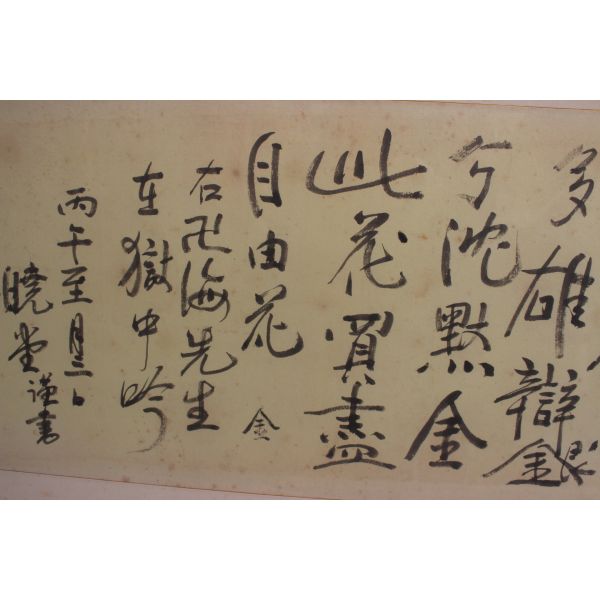 多雄辯銀
兮沈黙金
此花買盡
自由花 金
右卍海先生
在獄中吟
丙午至月日
曉堂謹書